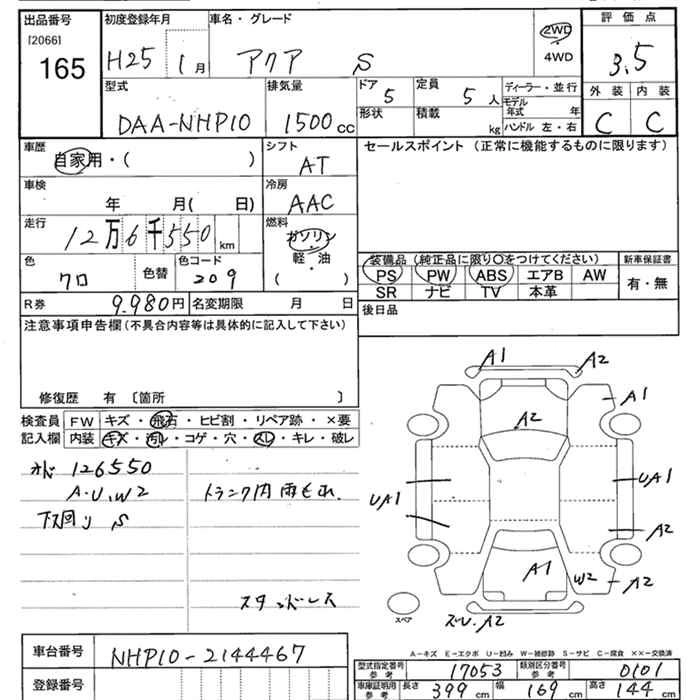 出品番号 初度登録年月 車名・グレード 評価点
[2066]
165
H25 1月 アクア S 2WD 3.5
4WD
型式 排気量 ドア 定員 ディーラー・並行 外装 内装
DAA-NHP10 1500cc 5 5人 モデル年式 年 C C
形状 積載 kg ハンドル 左・右
車歴 シフト セールスポイント（正常に機能するものに限ります）
自家用・( ) AT
車検 冷房
年 月( 日) AAC
走行 燃料
12万6千550km ガソリン
軽・油
( )
装備品（純正品に限り○をつけてください） 新車保証書
色 色替 色コード
クロ 209
PS PW ABS エアB AW 有・無
SR ナビ TV 本革
R券 9.980円 名変期限 月 日
後日品
注意事項申告欄（不具合内容等は具体的に記入して下さい）
修復歴 有〔箇所 〕
検査員 FW キズ・飛石・ヒビ割・リペア跡・×要
記入欄 内装 キズ・汚レ・コゲ・穴・スレ・キレ・破レ
126550
A・U、W2
トランク内 雨もれ.
下回り S
スタッドレス
A1 A2
A1
A2
UA1 UA1
A2
A1 W2 A2
A2
スペア
A-キズ E-エクボ U-凹み W-補修跡 S-サビ C-腐食 ××-交換済
車台番号 NHP10-2144467
登録番号
型式指定番号 参考 17053 類別区分番号 参考 0101
車庫証明用 参考 長さ 399cm 幅 169cm 高さ 144cm